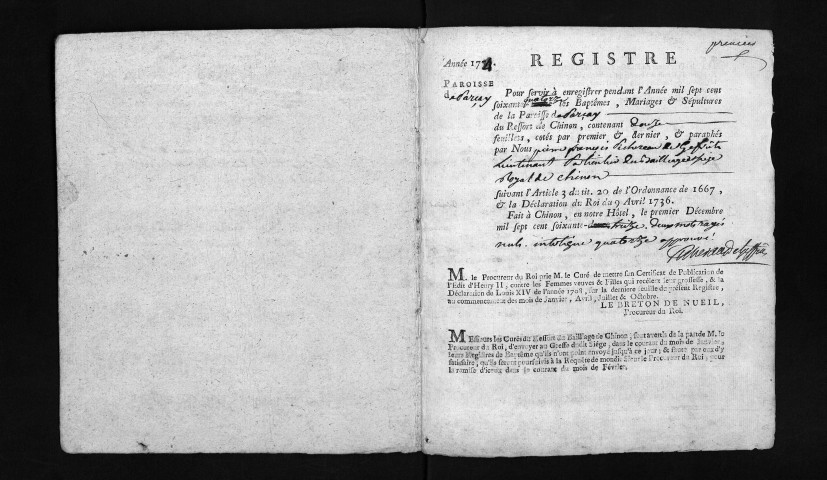 premier
REGISTRE
Année 1774.
PAROISSE
de Parçay
Pour servir à enregistrer pendant l'Année mil sept cent
soixante quatorze les Baptêmes, Mariages & Sépultures
de la Paroisse de Parçay
du Ressort de Chinon, contenant douze
feuillets, cotés par premier & dernier, & paraphés
par Nous pierre françois
Lieutenant Particulier du Bailliage & siege
Royal de chinon
suivant l'Article 3 du tit. 20 de l'Ordonnance de 1667,
& la Déclaration du Roi du 9 Avril 1736.
Fait à Chinon, en notre Hôtel, le premier Décembre
mil sept cent soixante treize deux mots rayés
nuls. interligne quatorze approuvé.
M. le Procureur du Roi prie M. le Curé de mettre son Certificat de Publication de
l'Edit d'Henry II, contre les Femmes veuves & Filles qui recèlent leur grossesse, & la
Déclaration de Louis XIV de l'année 1708, sur la derniere feuille du présent Registre,
au commencement des mois de Janvier, Avril, Juillet & Octobre.
LE BRETON DE NUEIL,
Procureur du Roi.
Messieurs les Curés du Ressort du Bailliage de Chinon, sont avertis de la part de M. le
Procureur du Roi, d'envoyer au Greffe dudit Siége, dans le courant du mois de Janvier,
leurs Registres de Baptême qu'ils n'ont point envoyé jusqu'à ce jour; & faute par eux d'y
satisfaire, qu'ils seront poursuivis à la Requête de mondit Sieur le Procureur du Roi, pour
la remise d'iceux dans le courant du mois de Février.